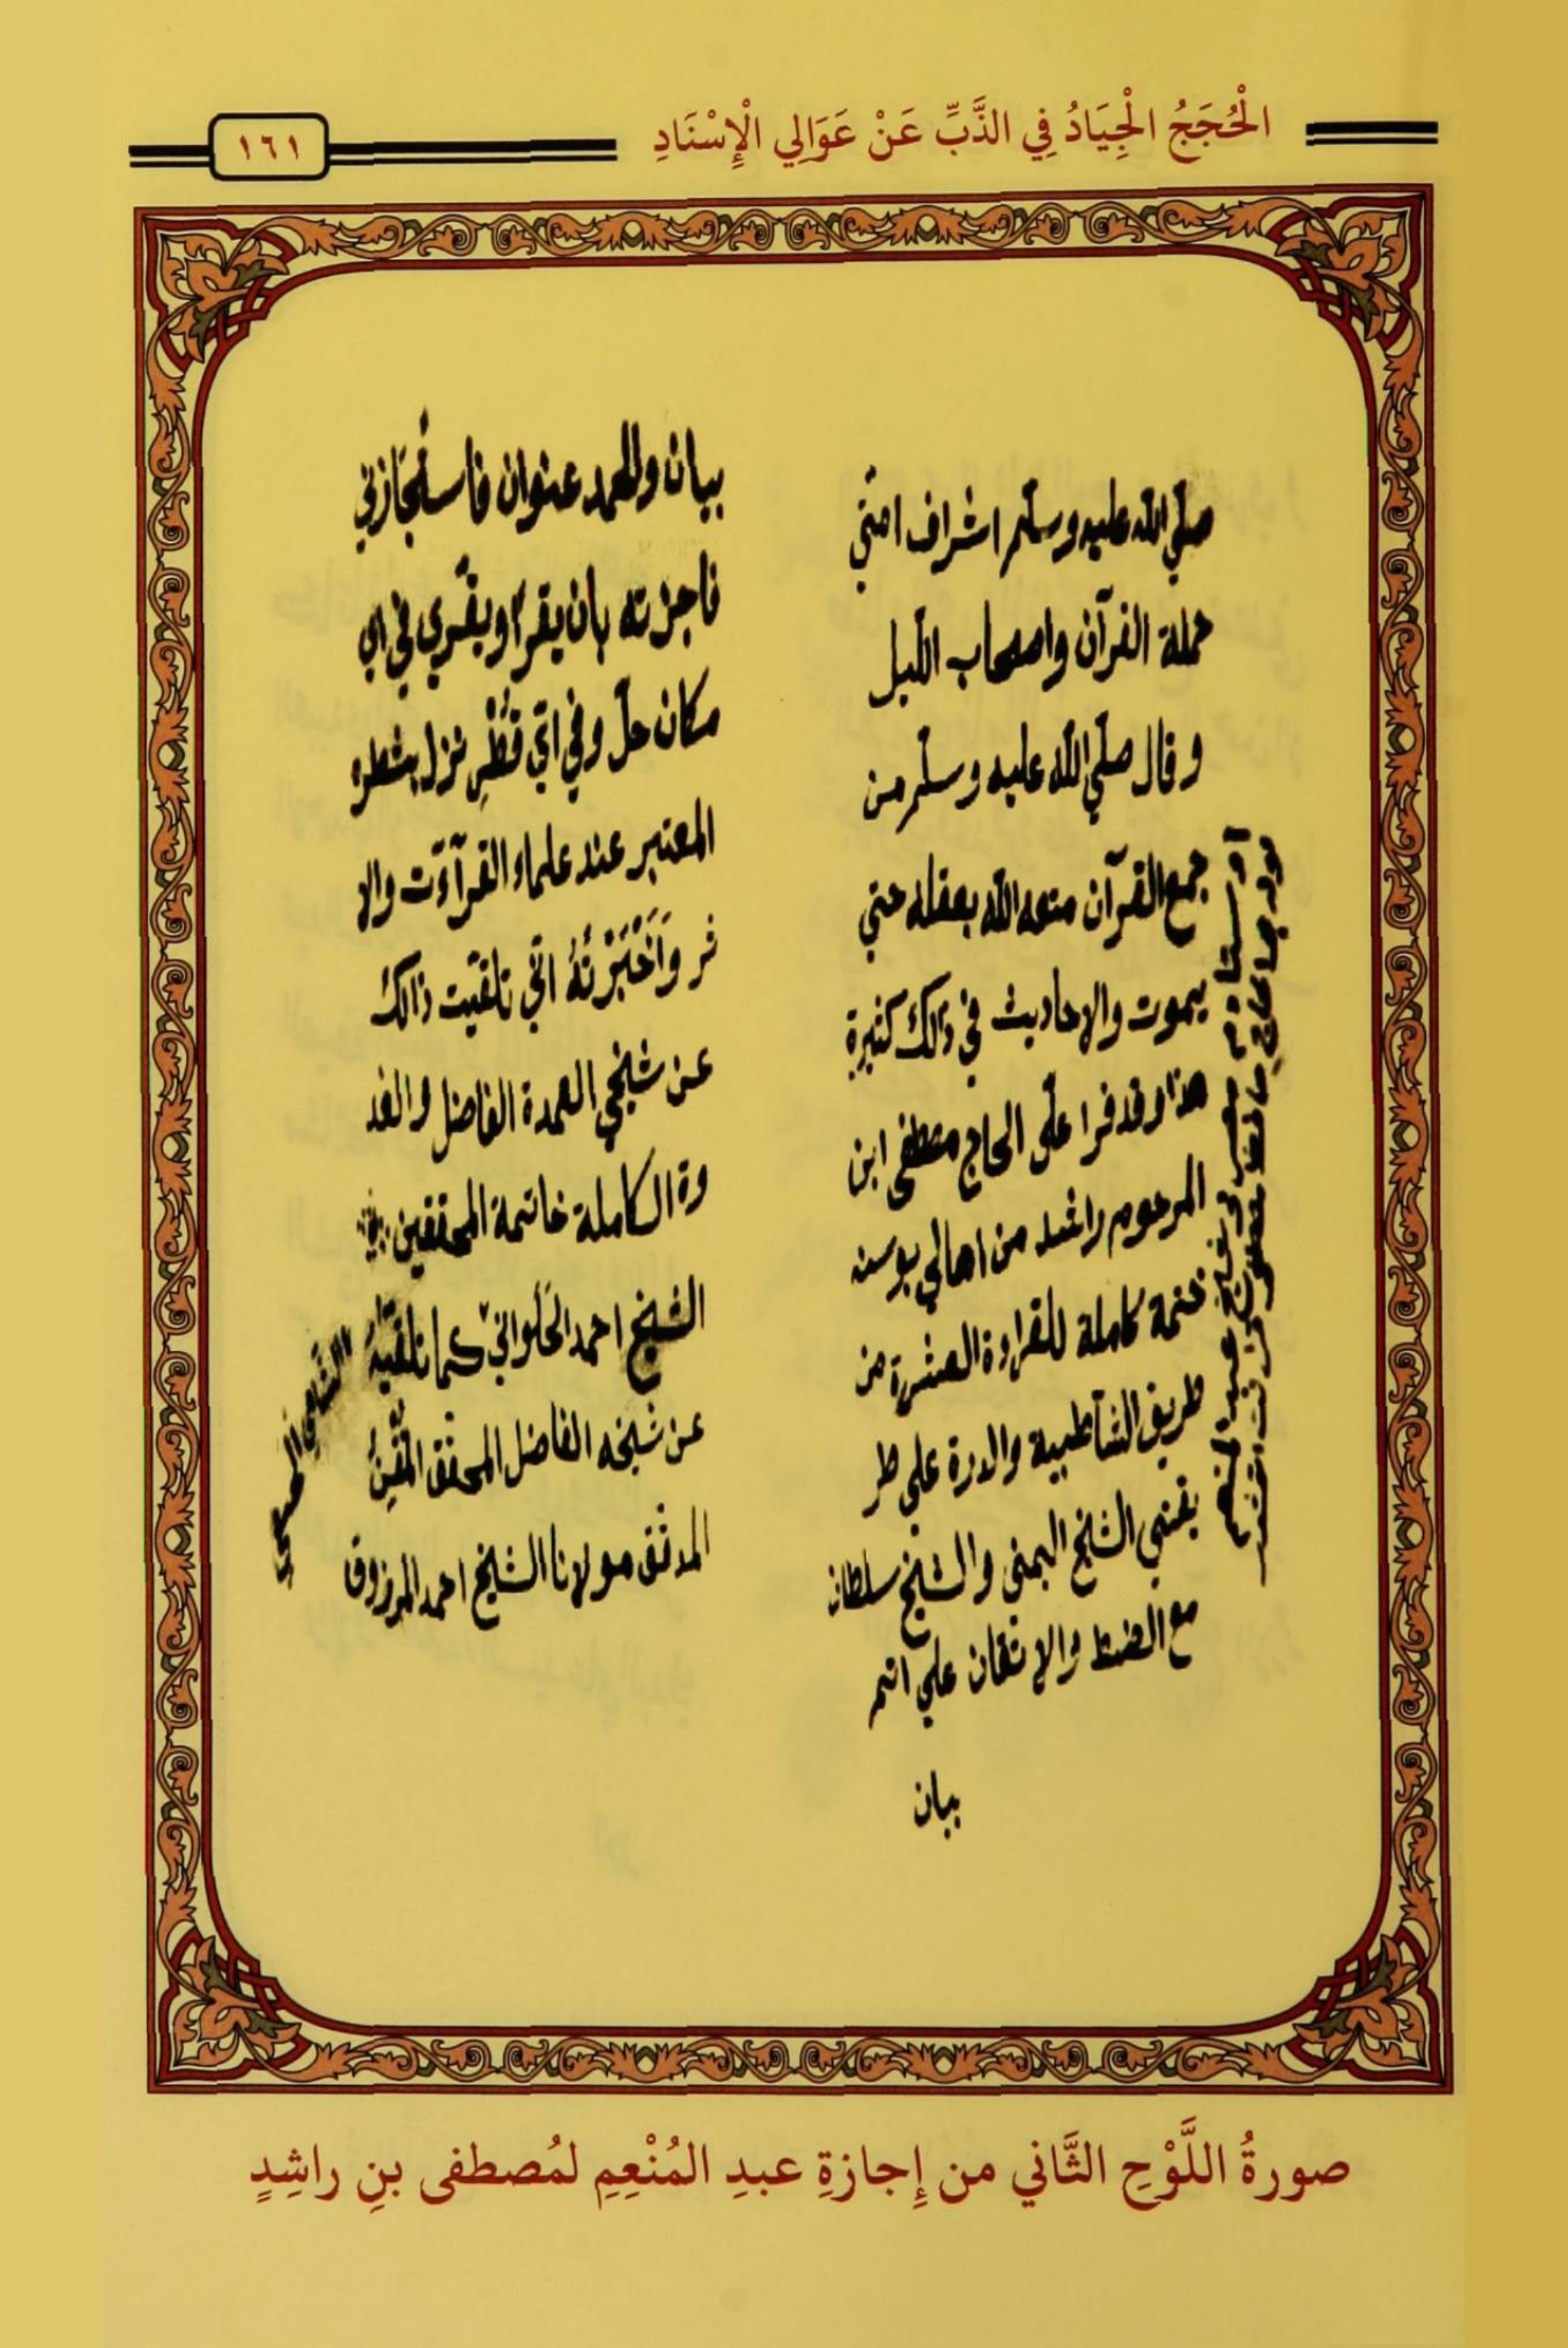 الْحُجَجُ الْجِيَادُ فِي الذَّبِّ عَنْ عَوَالِي الْإِسْنَادِ
١٦١
صلّي الله عليه وسلّم اشراف امتي
حملة القرآن واصحاب الليل
وقال صلّي الله عليه وسلّم من
جمع القرآن متعه الله بعقله حتي
يموت والاحاديث في ذلك كثيرة
هذا وقد قرا علّى الحاج مصطفى ابن
المرحوم راشد من اهالي بوسنه
ختمة كاملة للقراءة العشرة من
طريق الشاطبية والدرة علي طر
يقتي الشيخ اليمني والشيخ سلطان
مع الضبط والاتقان علي اتم
بيان
عبد المنعم
بيان وللحمد عنوان فاستجازني
فاجزته بان يقرا ويقري في اي
مكان حلّ وفي ايّ قُطْرٍ نزل بشطره
المعتبر عند علماء القرآءآت والا
ثر وَأَخْبَرْتُهُ انّي تلقيت ذالك
عن شيخي العمدة الفاضل والقد
وة الكاملة خاتمة المحققين
الشيخ احمد الحَلَواني كما تلقيته
عن شيخه الفاضل المحقق المُتْقِن
المدقق مولانا الشيخ احمد المرزوق
صورةُ اللَّوْحِ الثَّاني من إِجازةِ عبدِ المُنْعِمِ لمُصطفى بنِ راشِدٍ